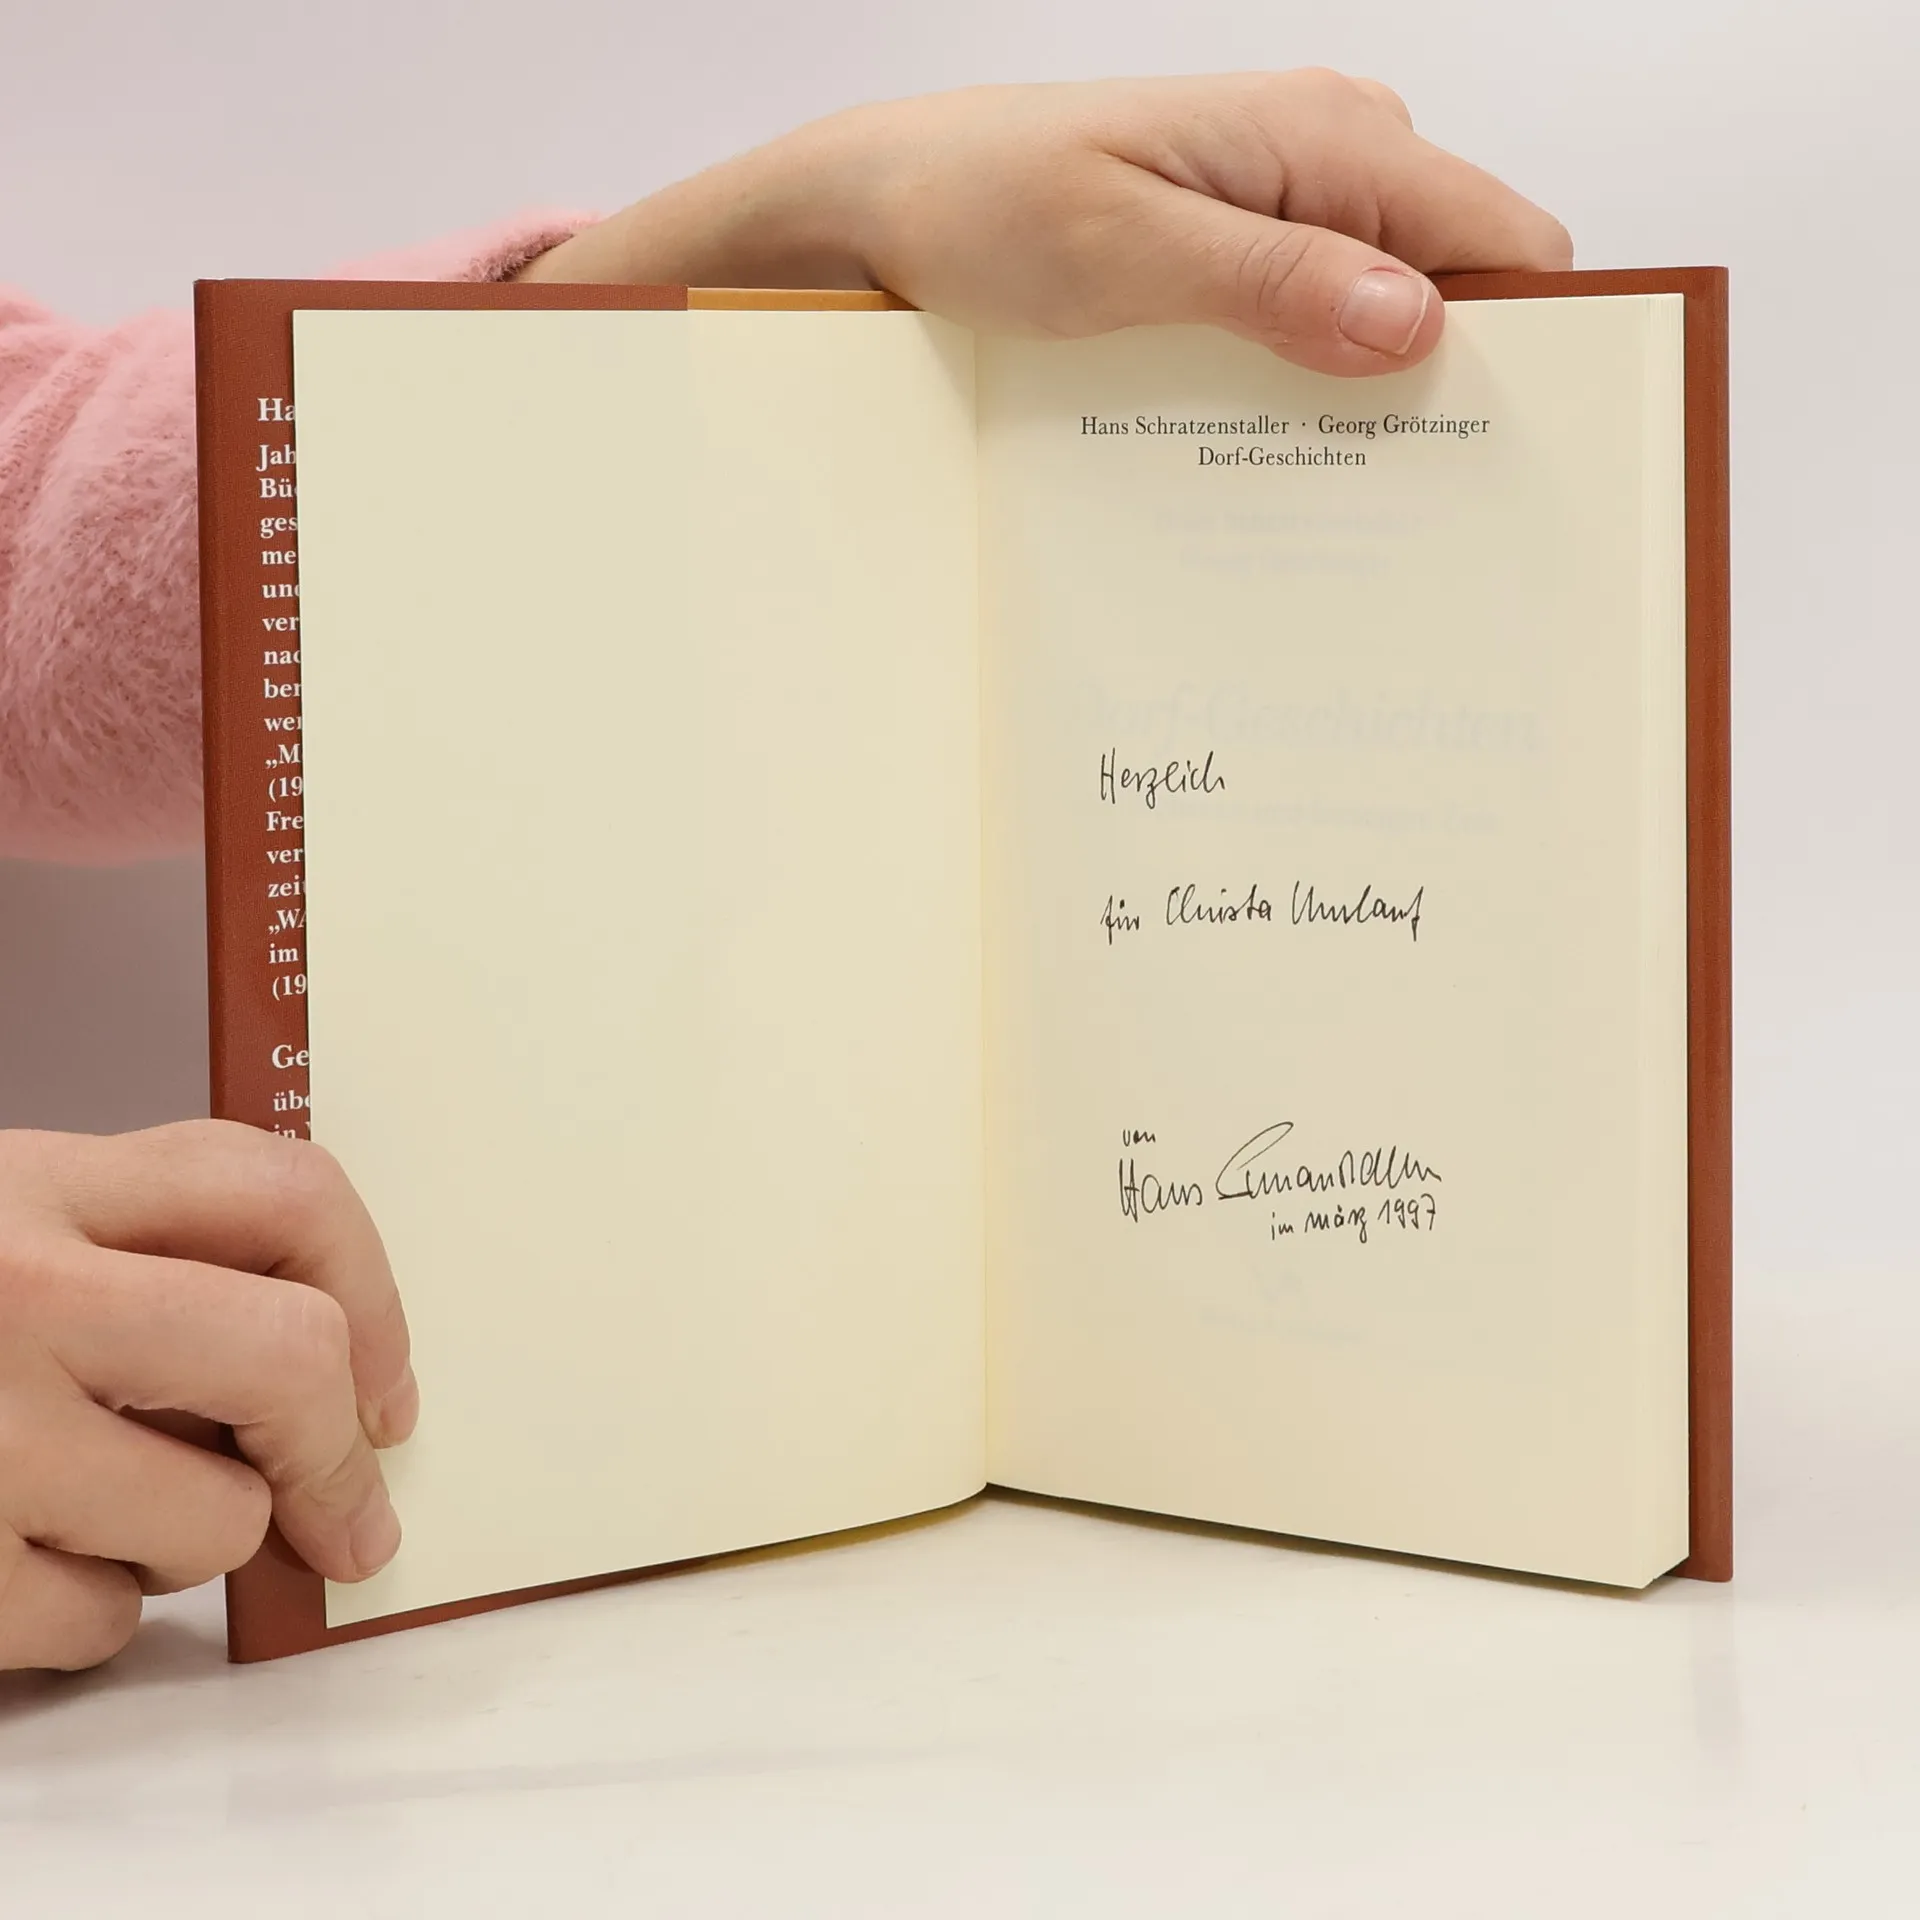 Ha
Jah
Bü
ges
me
und
ver
nac
ber
wer
„M
(19
Fre
ver
zei
„WA
im
(19
Ge
übe
in
Hans Schratzenstaller · Georg Grötzinger
Dorf-Geschichten
Dorf-Geschichten
Herzlich
für Christa Umlauf
von
Hans
im März 1997